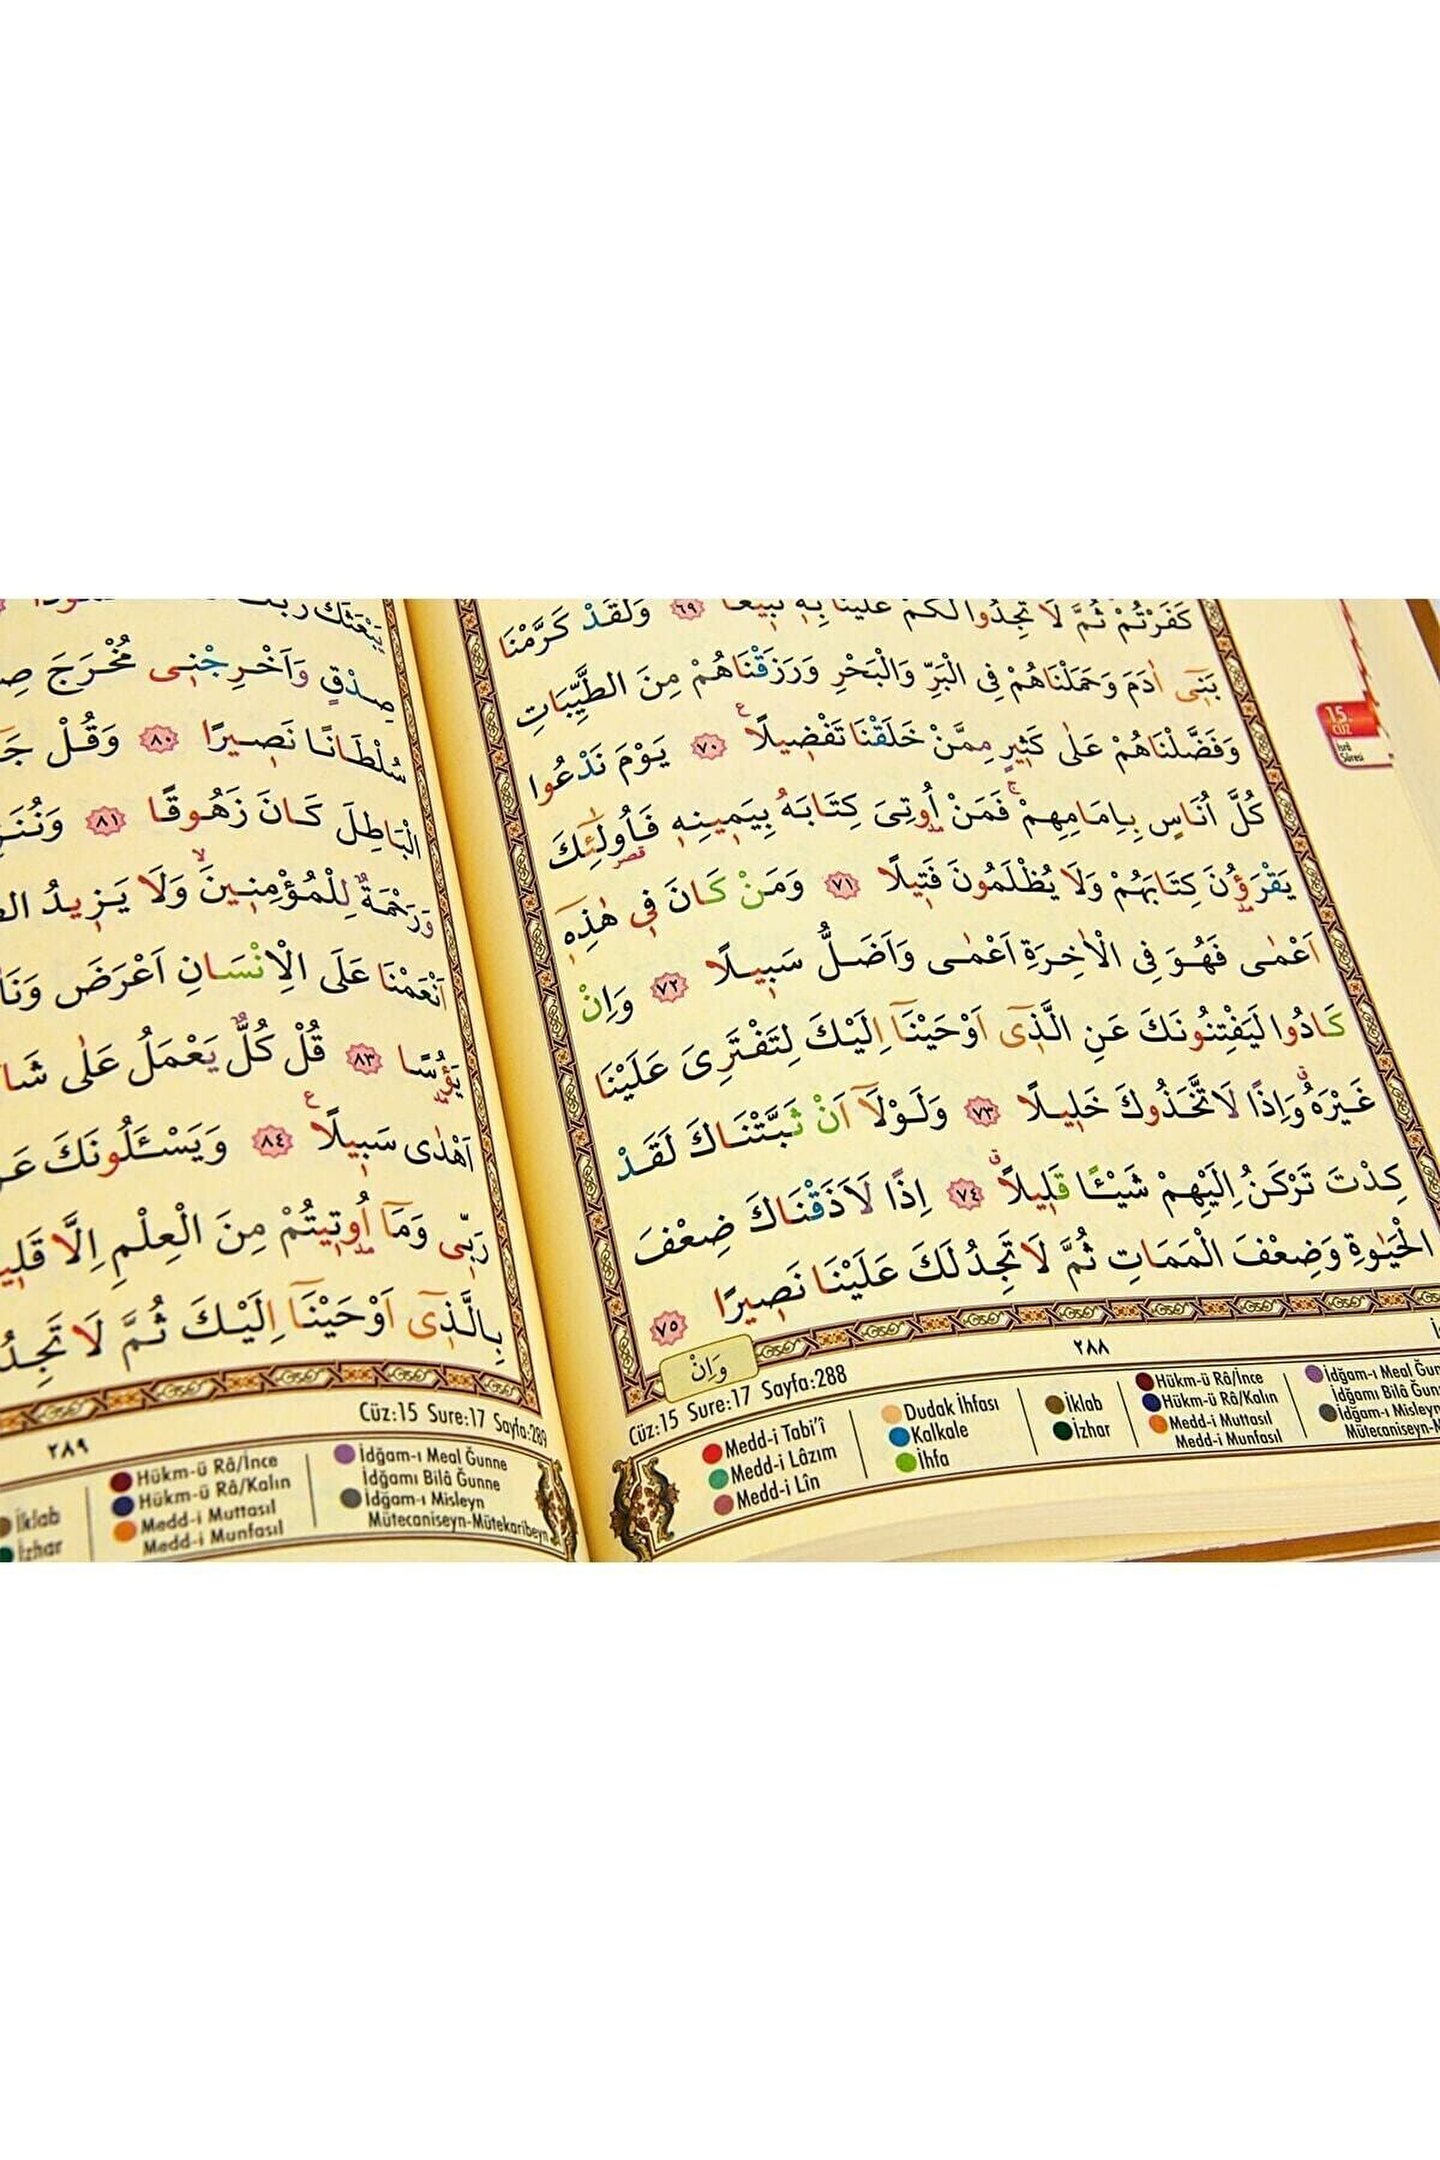 كَفَرْتُمْ ثُمَّ لَا تَجِدُوا لَكُمْ عَلَيْنَا بِهٖ تَبٖيعًا ﴿٦٩﴾ وَلَقَدْ كَرَّمْنَا
بَنٖٓى اٰدَمَ وَحَمَلْنَاهُمْ فِى الْبَرِّ وَالْبَحْرِ وَرَزَقْنَاهُمْ مِنَ الطَّيِّبَاتِ
وَفَضَّلْنَاهُمْ عَلٰى كَثٖيرٍ مِمَّنْ خَلَقْنَا تَفْضٖيلًا ﴿٧٠﴾ يَوْمَ نَدْعُوا
كُلَّ اُنَاسٍ بِاِمَامِهِمْ فَمَنْ اُو۫تِىَ كِتَابَهُ بِيَمٖينِهٖ فَاُو۬لٰٓئِكَ
يَقْرَؤُ۫نَ كِتَابَهُمْ وَلَا يُظْلَمُونَ فَتٖيلًا ﴿٧١﴾ وَمَنْ كَانَ فٖى هٰذِهٖٓ
اَعْمٰى فَهُوَ فِى الْاٰخِرَةِ اَعْمٰى وَاَضَلُّ سَبٖيلًا ﴿٧٢﴾ وَاِنْ
كَادُوا لَيَفْتِنُونَكَ عَنِ الَّذٖٓى اَوْحَيْنَٓا اِلَيْكَ لِتَفْتَرِىَ عَلَيْنَا
غَيْرَهُ وَاِذًا لَاتَّخَذُوكَ خَلٖيلًا ﴿٧٣﴾ وَلَوْلَٓا اَنْ ثَبَّتْنَاكَ لَقَدْ
كِدْتَ تَرْكَنُ اِلَيْهِمْ شَيْـًٔا قَلٖيلًا ﴿٧٤﴾ اِذًا لَاَذَقْنَاكَ ضِعْفَ
الْحَيٰوةِ وَضِعْفَ الْمَمَاتِ ثُمَّ لَا تَجِدُ لَكَ عَلَيْنَا نَصٖيرًا ﴿٧٥﴾
وَاِنْ
٢٨٨
Cüz:15 Sure:17 Sayfa:288
Medd-i Tabi'î
Medd-i Lâzım
Medd-i Lîn
Dudak İhfası
Kalkale
İhfa
İklab
İzhar
Hükm-ü Râ/İnce
Hükm-ü Râ/Kalın
Medd-i Muttasıl
Medd-i Munfasıl
İdğam-ı Meal
İdğamı Bilâ
İdğam-ı Misleyn
Mütecaniseyn
15.
CÜZ
İsrâ
Sûresi
يَبْعَثَكَ
صِدْقٍ وَاَخْرِجْنٖى مُخْرَجَ
سُلْطَانًا نَصٖيرًا ﴿٨٠﴾ وَقُلْ
الْبَاطِلَ كَانَ زَهُوقًا ﴿٨١﴾
وَرَحْمَةٌ لِلْمُؤْمِنٖينَ وَلَا يَزٖيدُ
اَنْعَمْنَا عَلَى الْاِنْسَانِ اَعْرَضَ
يَؤُ۫سًا ﴿٨٣﴾ قُلْ كُلٌّ يَعْمَلُ عَلٰى
اَهْدٰى سَبٖيلًا ﴿٨٤﴾ وَيَسْـَٔلُونَكَ
رَبّٖى وَمَٓا اُو۫تٖيتُمْ مِنَ الْعِلْمِ اِلَّا
بِالَّذٖٓى اَوْحَيْنَٓا اِلَيْكَ ثُمَّ لَا تَجِدُ
Cüz:15 Sure:17 Sayfa:289
٢٨٩
İklab
İzhar
Hükm-ü Râ/İnce
Hükm-ü Râ/Kalın
Medd-i Muttasıl
Medd-i Munfasıl
İdğam-ı Meal Ğunne
İdğamı Bilâ Ğunne
İdğam-ı Misleyn
Mütecaniseyn-Mütekaribeyn